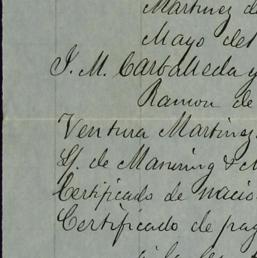 Martinez d
Mayo del
J. M. Carballeda y
Ramon de
Ventura Martinez
Lf. de Manning & M
Certificado de nacio
Certificado de pag